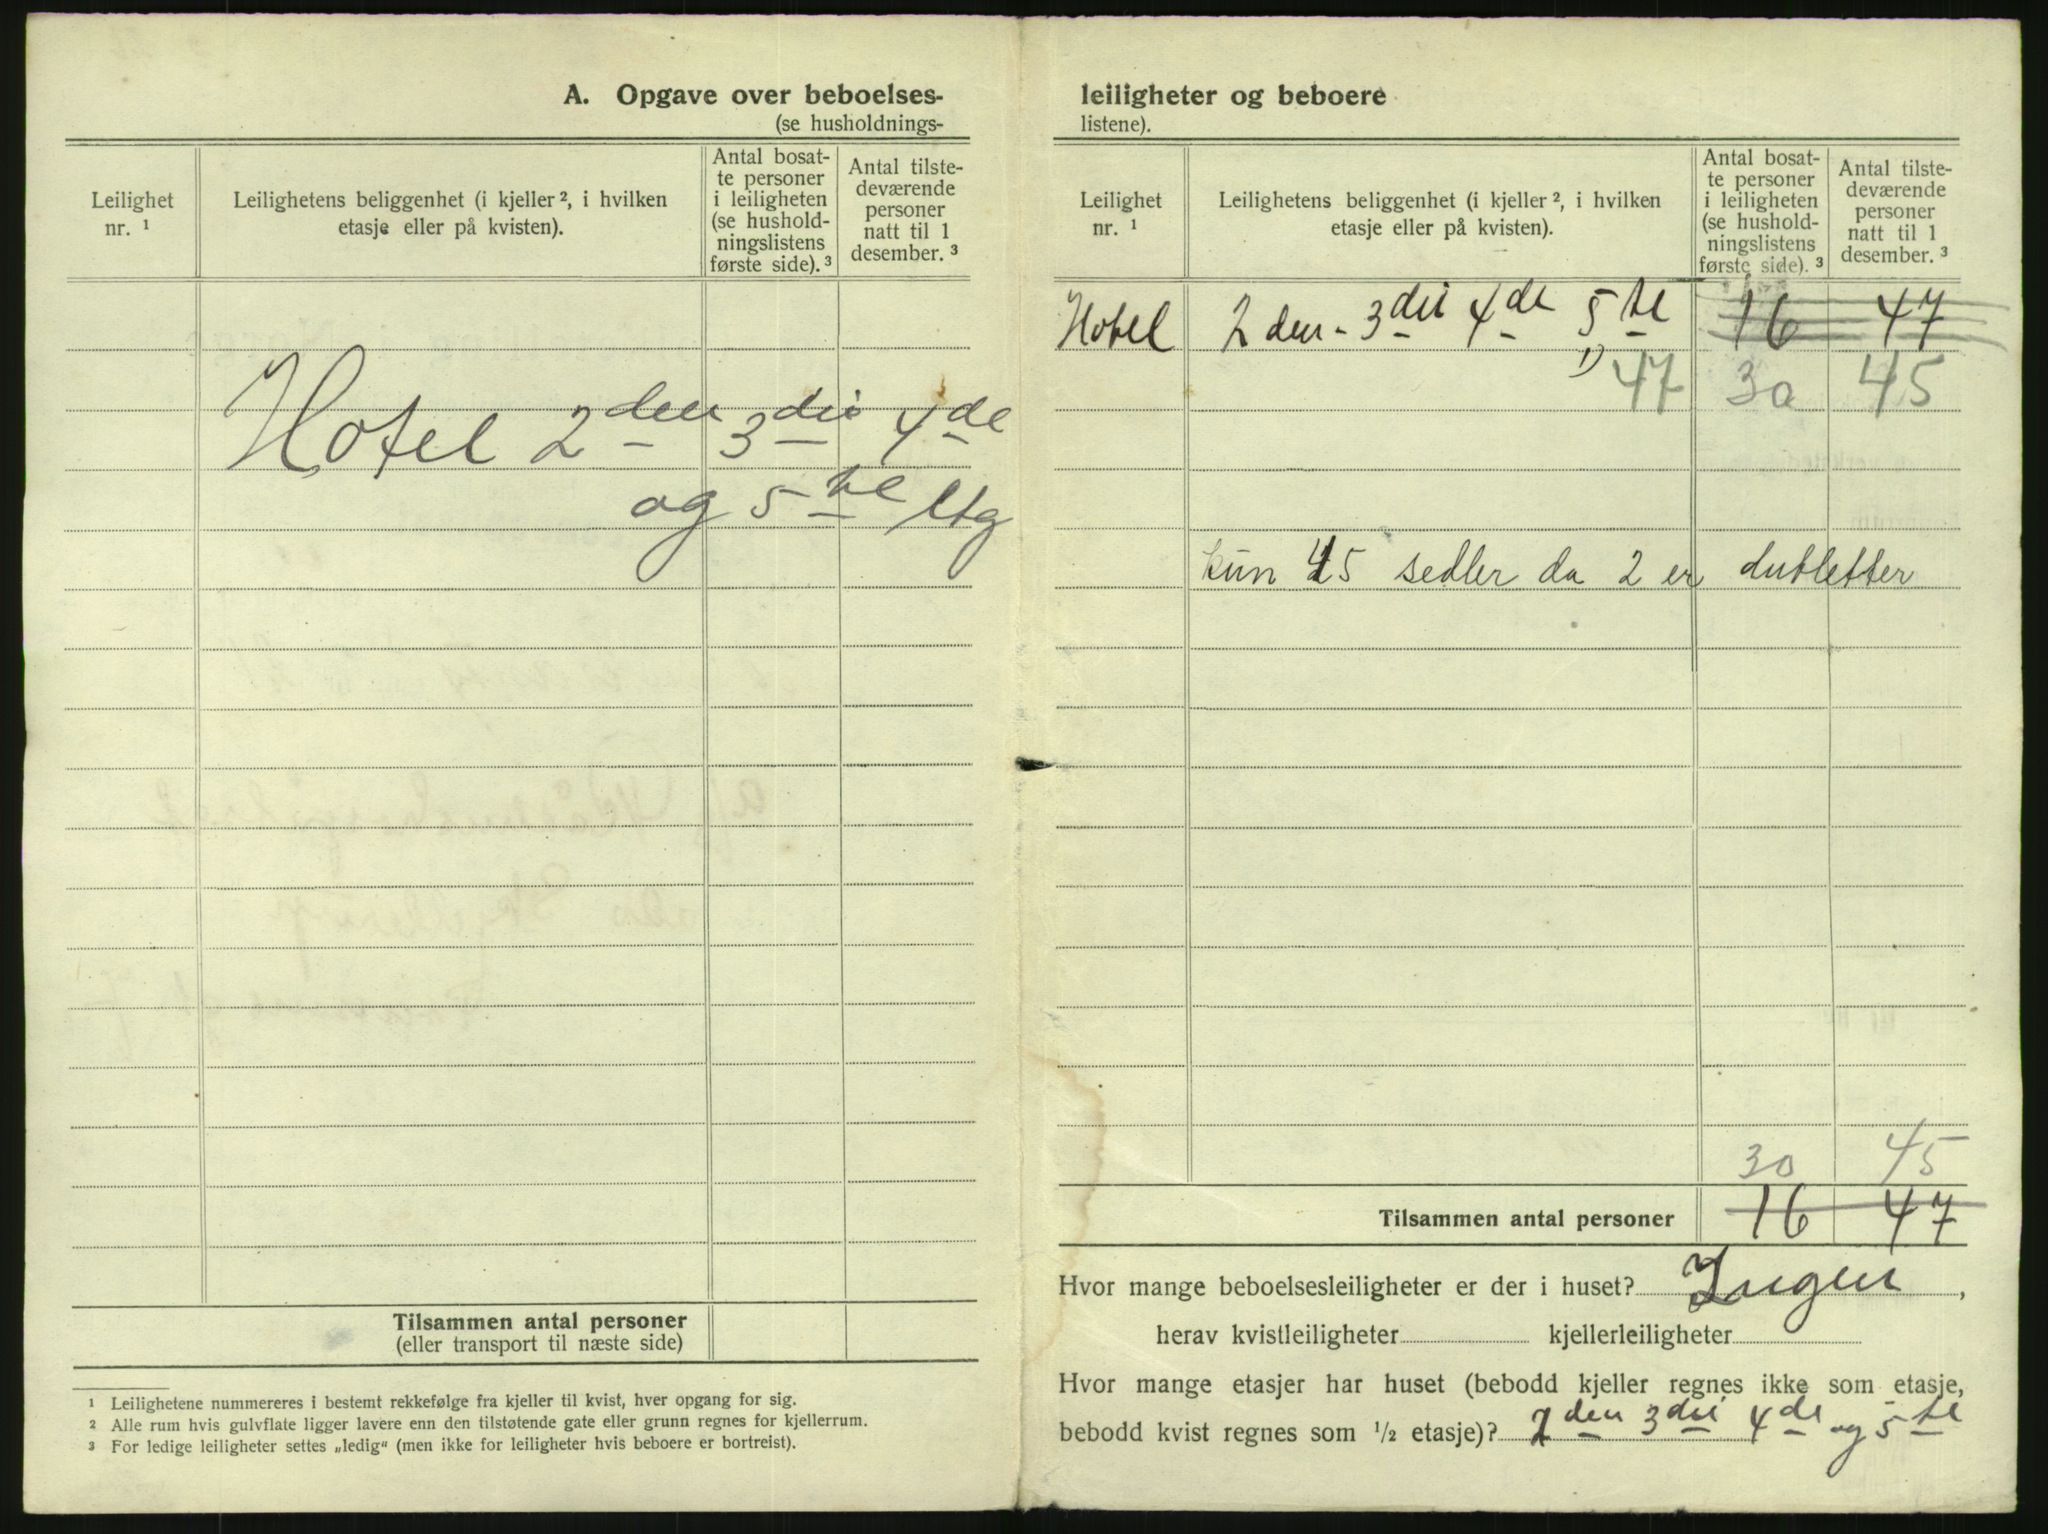 A. Opgave over beboelses-
(se husholdnings-
Leilighet
nr. ¹
Leilighetens beliggenhet (i kjeller ², i hvilken
etasje eller på kvisten).
Antal bosat-
te personer
i leiligheten
(se hushold-
ningslistens
første side). ³
Antal tilste-
deværende
personer
natt til 1
desember. ³
Hotel 2den 3dii 4de
og 5te Etg
Tilsammen antal personer
(eller transport til næste side)
¹ Leilighetene nummereres i bestemt rekkefølge fra kjeller til kvist, hver opgang for sig.
² Alle rum hvis gulvflate ligger lavere enn den tilstøtende gate eller grunn regnes for kjellerrum.
³ For ledige leiligheter settes „ledig“ (men ikke for leiligheter hvis beboere er bortreist).
leiligheter og beboere
listene).
Leilighet
nr. ¹
Leilighetens beliggenhet (i kjeller ², i hvilken
etasje eller på kvisten).
Antal bosat-
te personer
i leiligheten
(se hushold-
ningslistens
første side). ³
Antal tilste-
deværende
personer
natt til 1
desember. ³
Hotel 2den - 3dii 4de 5te 16 47
1) 47 30 45
kun 45 sedler da 2 er dubletter
30 45
Tilsammen antal personer 16 47
Hvor mange beboelsesleiligheter er der i huset? Ingen,
herav kvistleiligheter kjellerleiligheter
Hvor mange etasjer har huset (bebodd kjeller regnes ikke som etasje,
bebodd kvist regnes som ½ etasje)? 2den 3dii 4de og 5te